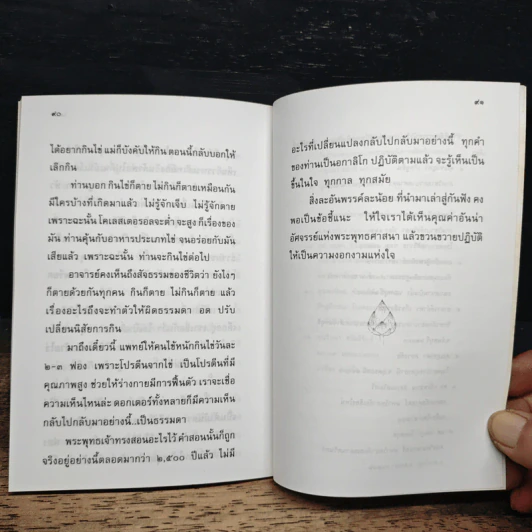 ๙๐
ได้อยากกินไข่ แม่ก็บังคับให้กิน ตอนนี้กลับบอกให้
เลิกกิน
ท่านบอก กินไข่ก็ตาย ไม่กินก็ตายเหมือนกัน
มีใครบ้างที่เกิดมาแล้ว ไม่รู้จักเจ็บ ไม่รู้จักตาย
เพราะฉะนั้น โคเลสเตอรอลจะต่ำ จะสูง ก็เรื่องของ
มัน ท่านคุ้นกับอาหารประเภทไข่ จนอร่อยกับมัน
เสียแล้ว เพราะฉะนั้น ท่านจะกินไข่ต่อไป
อาจารย์คงเห็นถึงสัจธรรมของชีวิตว่า ยังไงๆ
ก็ตายด้วยกันทุกคน กินก็ตาย ไม่กินก็ตาย แล้ว
เรื่องอะไรถึงจะทำตัวให้ผิดธรรมดา อด ปรับ
เปลี่ยนนิสัยการกิน
มาถึงเดี๋ยวนี้ แพทย์ให้คนไข้หนักกินไข่วันละ
๒-๓ ฟอง เพราะโปรตีนจากไข่ เป็นโปรตีนที่มี
คุณภาพสูง ช่วยให้ร่างกายมีการฟื้นตัว เราจะเชื่อ
ความเห็นไหนล่ะ ดอกเตอร์ทั้งหลายก็มีความเห็น
กลับไปกลับมาอย่างนี้...เป็นธรรมดา
พระพุทธเจ้าทรงสอนอะไรไว้ คำสอนนั้นก็ถูก
จริงอยู่อย่างนี้ตลอดมากว่า ๒,๕๐๐ ปีแล้ว ไม่มี
๙๑
อะไรที่เปลี่ยนแปลงกลับไปกลับมาอย่างนี้ ทุกคำ
ของท่านเป็นอกาลิโก ปฏิบัติตามแล้ว จะรู้เห็นเป็น
ขึ้นในใจ ทุกกาล ทุกสมัย
สิ่งละอันพรรค์ละน้อย ที่นำมาเล่าสู่กันฟัง คง
พอเป็นข้อชี้แนะ ให้ใจเราได้เห็นคุณค่าอันน่า
อัศจรรย์แห่งพระพุทธศาสนา แล้วขวนขวายปฏิบัติ
ให้เป็นความงอกงามแห่งใจ